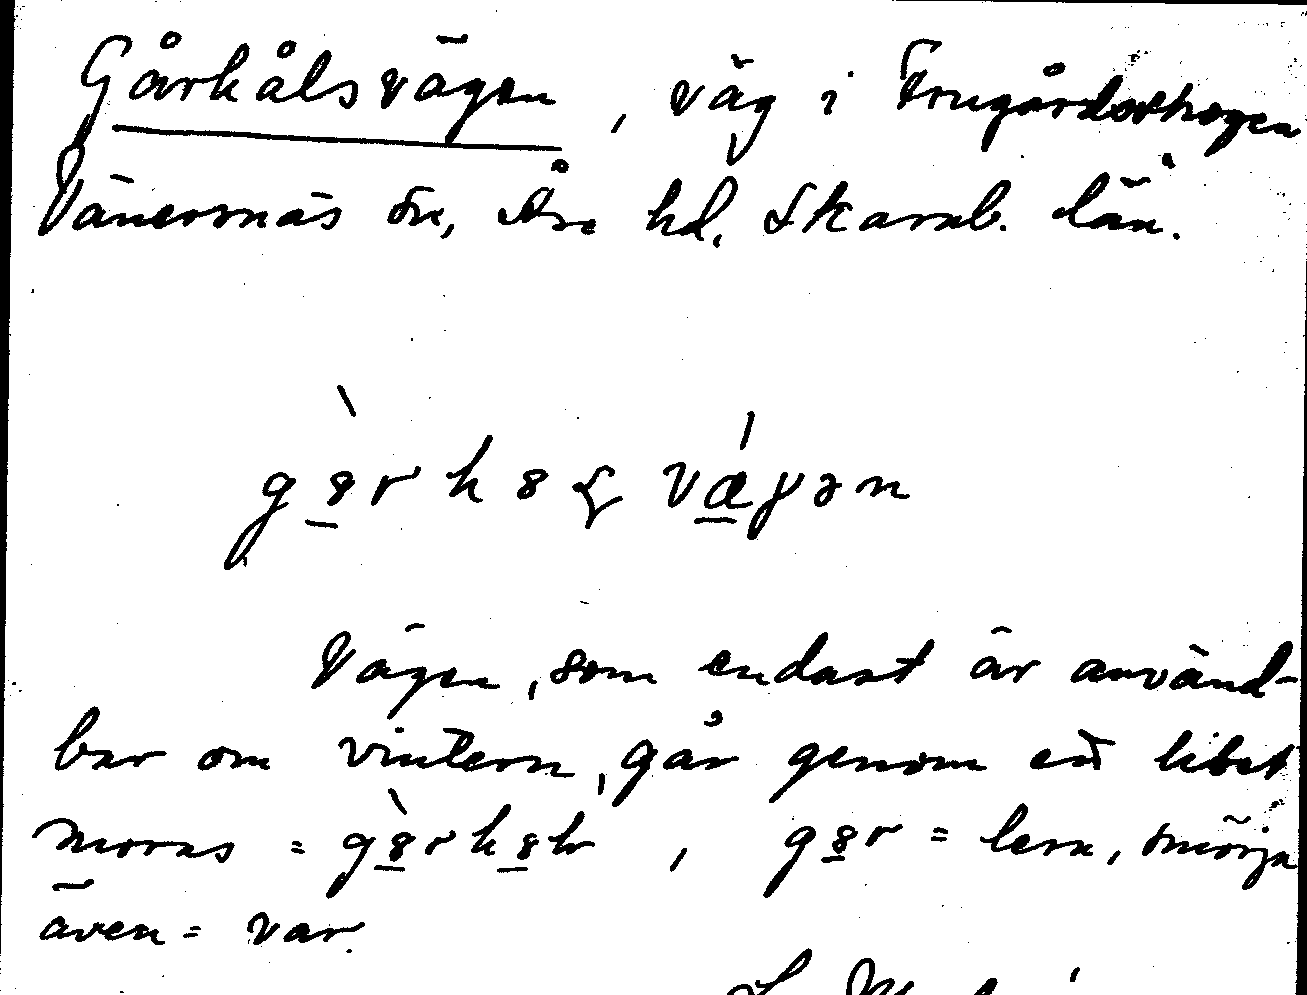 Gårhålsvägen, väg i Frugårdsskogen
Vänersnäs sn, Åse hd, Skarab. län.
Vägen, som endast är använd-
bar om vintern, går genom ett litet
moras = , = lera, smörja
även = var.